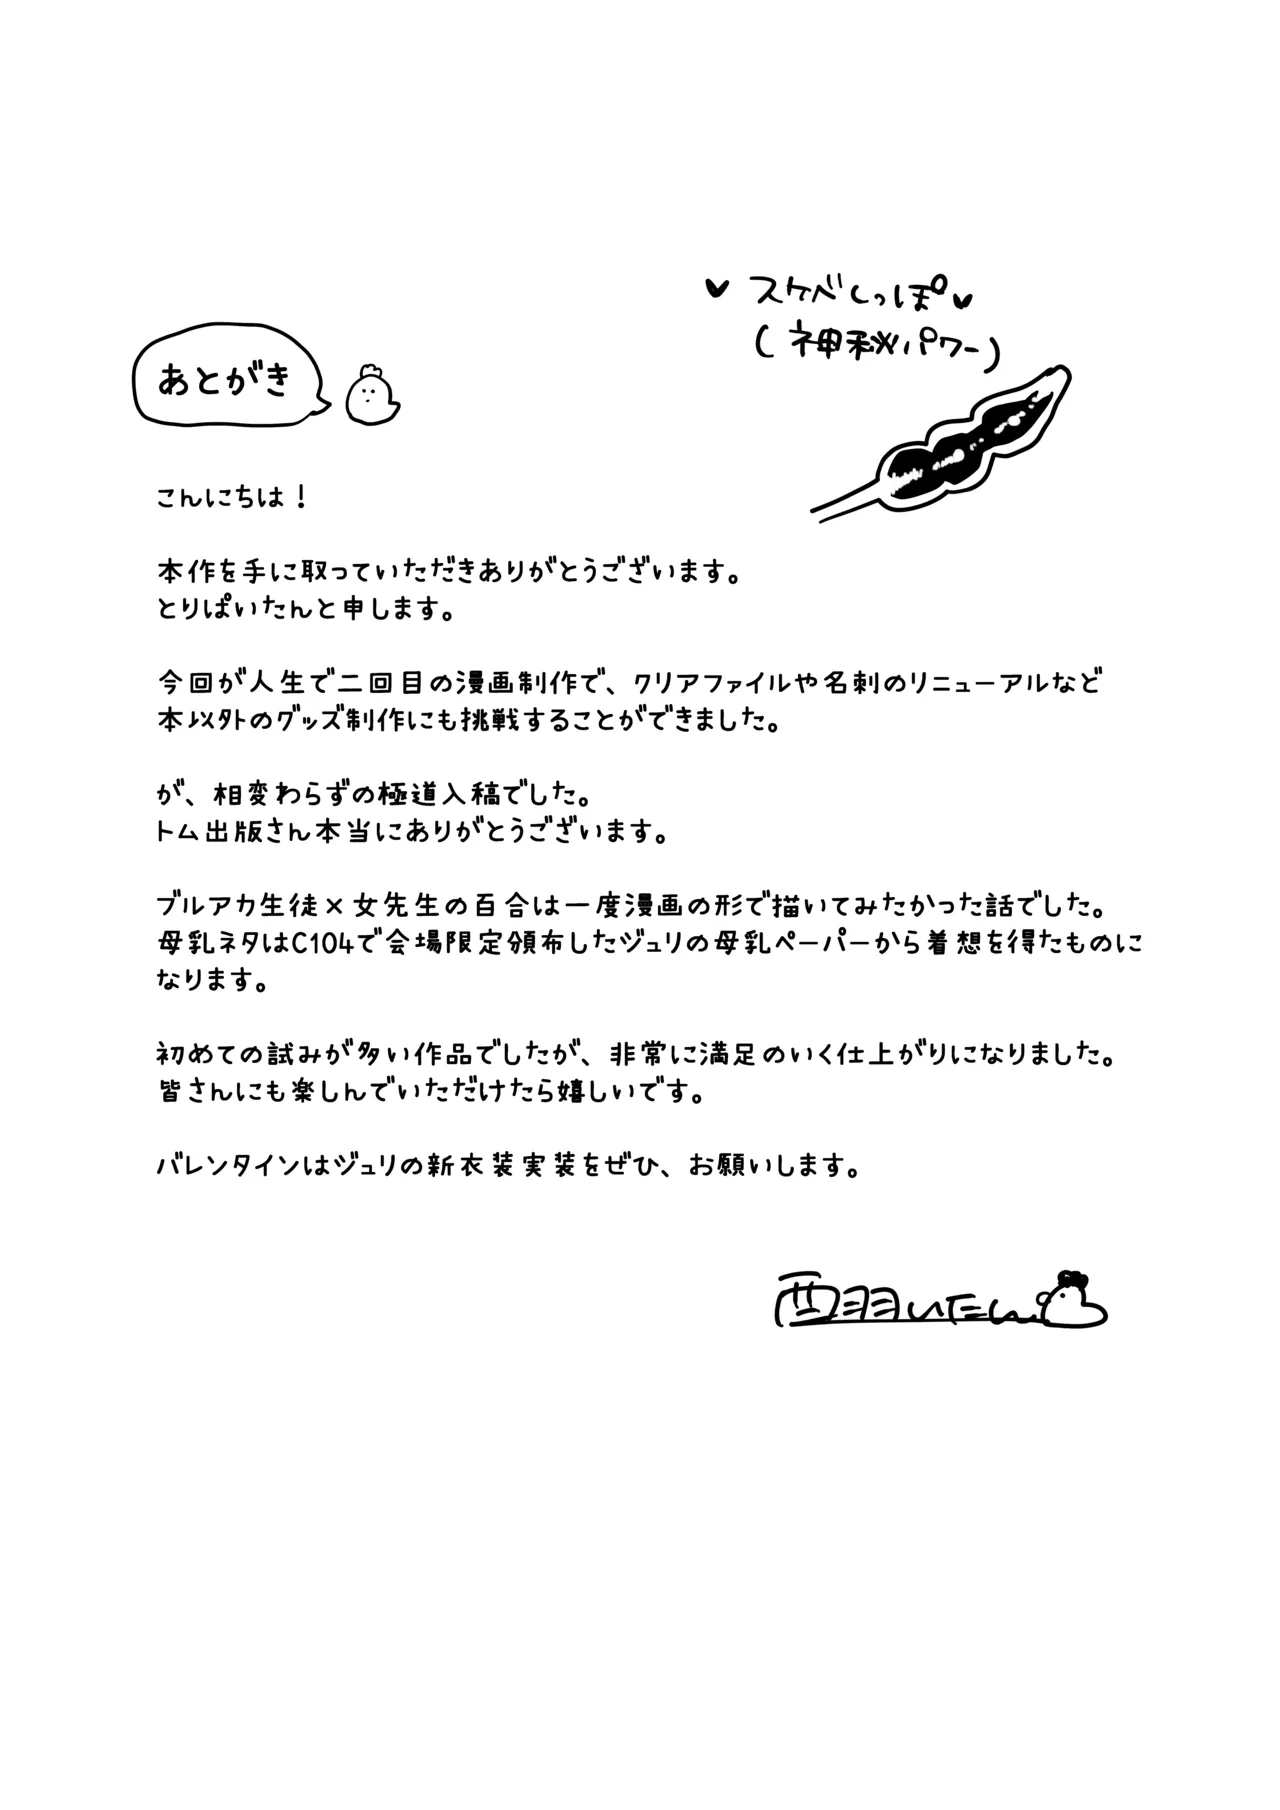 ♥ スケベしっぽ ♥
(神秘パワー)
あとがき
こんにちは！
本作を手に取っていただきありがとうございます。
とりぱいたんと申します。
今回が人生で二回目の漫画制作で、クリアファイルや名刺のリニューアルなど
本以外のグッズ制作にも挑戦することができました。
が、相変わらずの極道入稿でした。
トム出版さん本当にありがとうございます。
ブルアカ生徒×女先生の百合は一度漫画の形で描いてみたかった話でした。
母乳ネタはC104で会場限定頒布したジュリの母乳ペーパーから着想を得たものに
なります。
初めての試みが多い作品でしたが、非常に満足のいく仕上がりになりました。
皆さんにも楽しんでいただけたら嬉しいです。
バレンタインはジュリの新衣装実装をぜひ、お願いします。
酉羽いたん